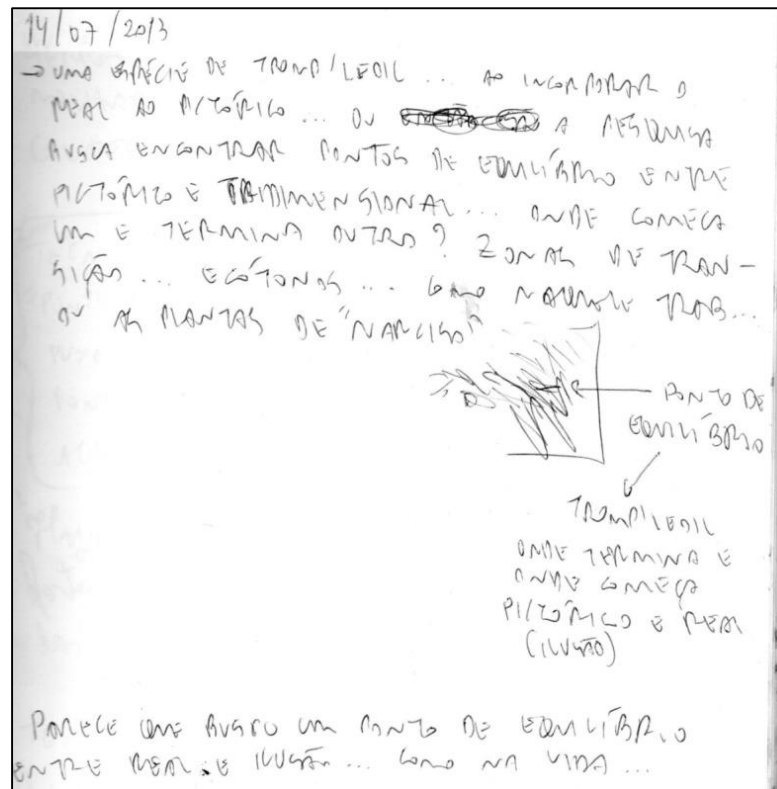 14/07/2013
→ UMA ESPÉCIE DE TROMP'LEOIL ... AO INCORPORAR O
REAL AO PICTÓRICO ... OU A PESQUISA
BUSCA ENCONTRAR PONTOS DE EQUILÍBRIO ENTRE
PICTÓRICO E TRIDIMENSIONAL ... ONDE COMEÇA
UM E TERMINA OUTRO? ZONAS DE TRAN-
SIÇÃO ... ECÓTONOS ... COMO NAQUELE TRAB...
OU AS PLANTAS DE "NARCISO"
PONTO DE
EQUILÍBRIO
TROMP'LEOIL
ONDE TERMINA E
ONDE COMEÇA
PICTÓRICO E REAL
(ILUSÃO)
PARECE QUE BUSCO UM PONTO DE EQUILÍBRIO
ENTRE REAL E ILUSÃO ... COMO NA VIDA ...